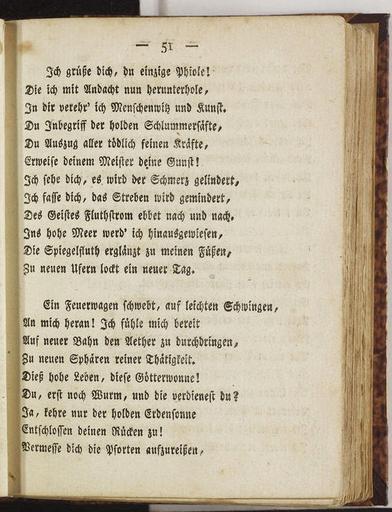 — 51 —
Ich grüße dich, du einzige Phiole!
Die ich mit Andacht nun herunterhole,
In dir verehr' ich Menschenwitz und Kunst.
Du Inbegriff der holden Schlummersäfte,
Du Auszug aller tödlich feinen Kräfte,
Erweise deinem Meister deine Gunst!
Ich sehe dich, es wird der Schmerz gelindert,
Ich fasse dich, das Streben wird gemindert,
Des Geistes Fluthstrom ebbet nach und nach.
Ins hohe Meer werd' ich hinausgewiesen,
Die Spiegelfluth erglänzt zu meinen Füßen,
Zu neuen Ufern lockt ein neuer Tag.
Ein Feuerwagen schwebt, auf leichten Schwingen,
An mich heran! Ich fühle mich bereit
Auf neuer Bahn den Aether zu durchdringen,
Zu neuen Sphären reiner Thätigkeit.
Dieß hohe Leben, diese Götterwonne!
Du, erst noch Wurm, und die verdienest du?
Ja, kehre nur der holden Erdensonne
Entschlossen deinen Rücken zu!
Vermesse dich die Pforten aufzureißen,